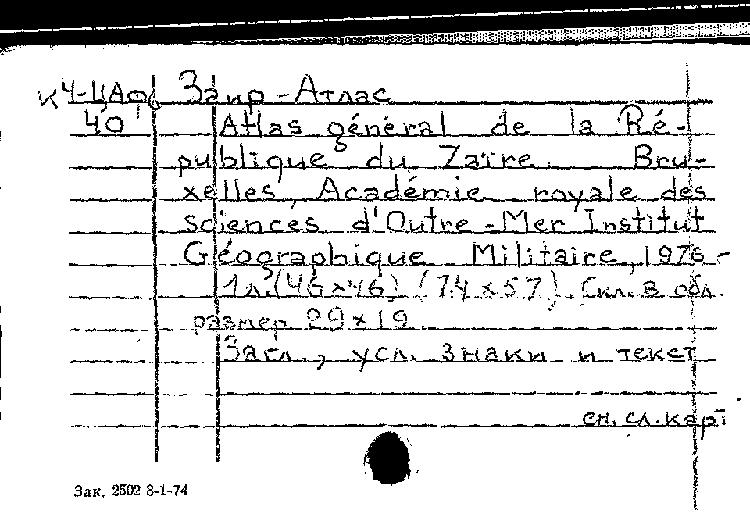 К4-ЦАФ Заир - Атлас
40 Atlas général de la Ré-
publique du Zaïre. Bru-
xelles, Académie royale des
sciences d'Outre-Mer Institut
Géographique Militaire, 1976-
1л.(46×46) (74×57). Скл. в обл.
размер 29×19.
Загл., усл. знаки и текст
см. сл. карт
Зак. 2502 8-1-74